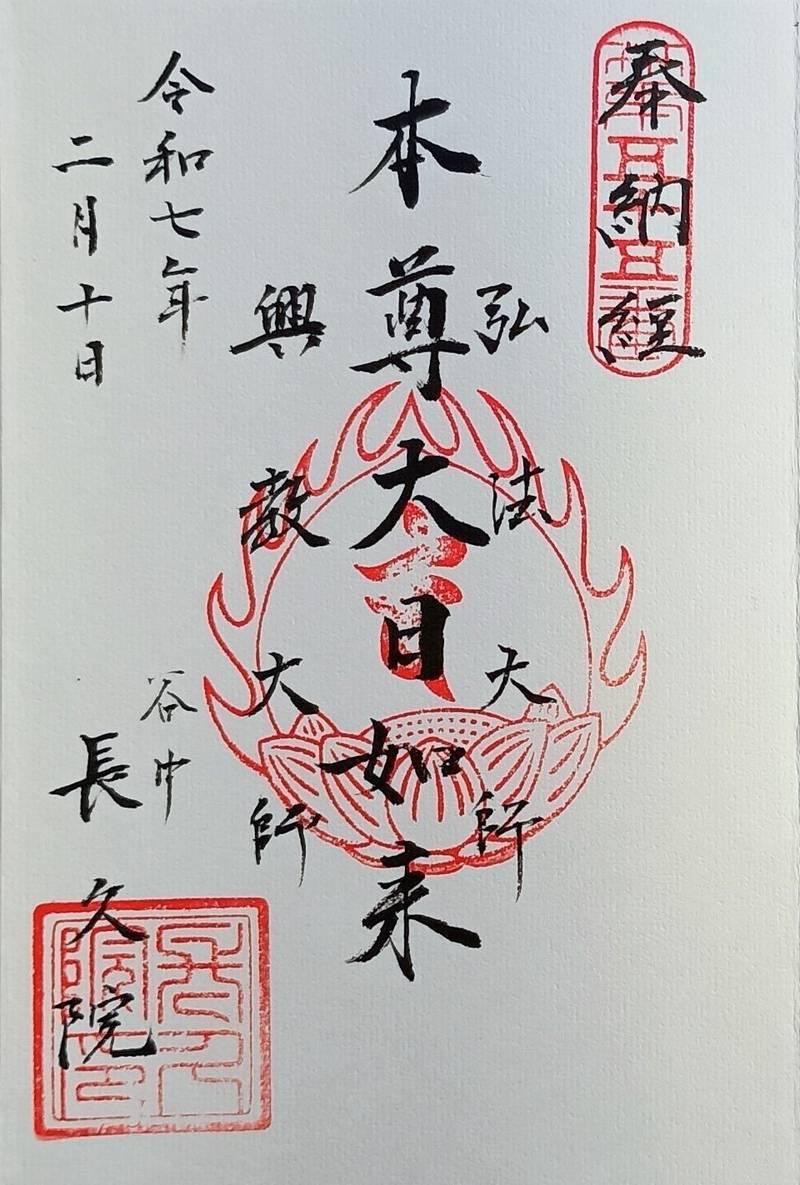 奉納經
弘法大師
本尊大日如来
興教大師
令和七年
二月十日
谷中
長久院